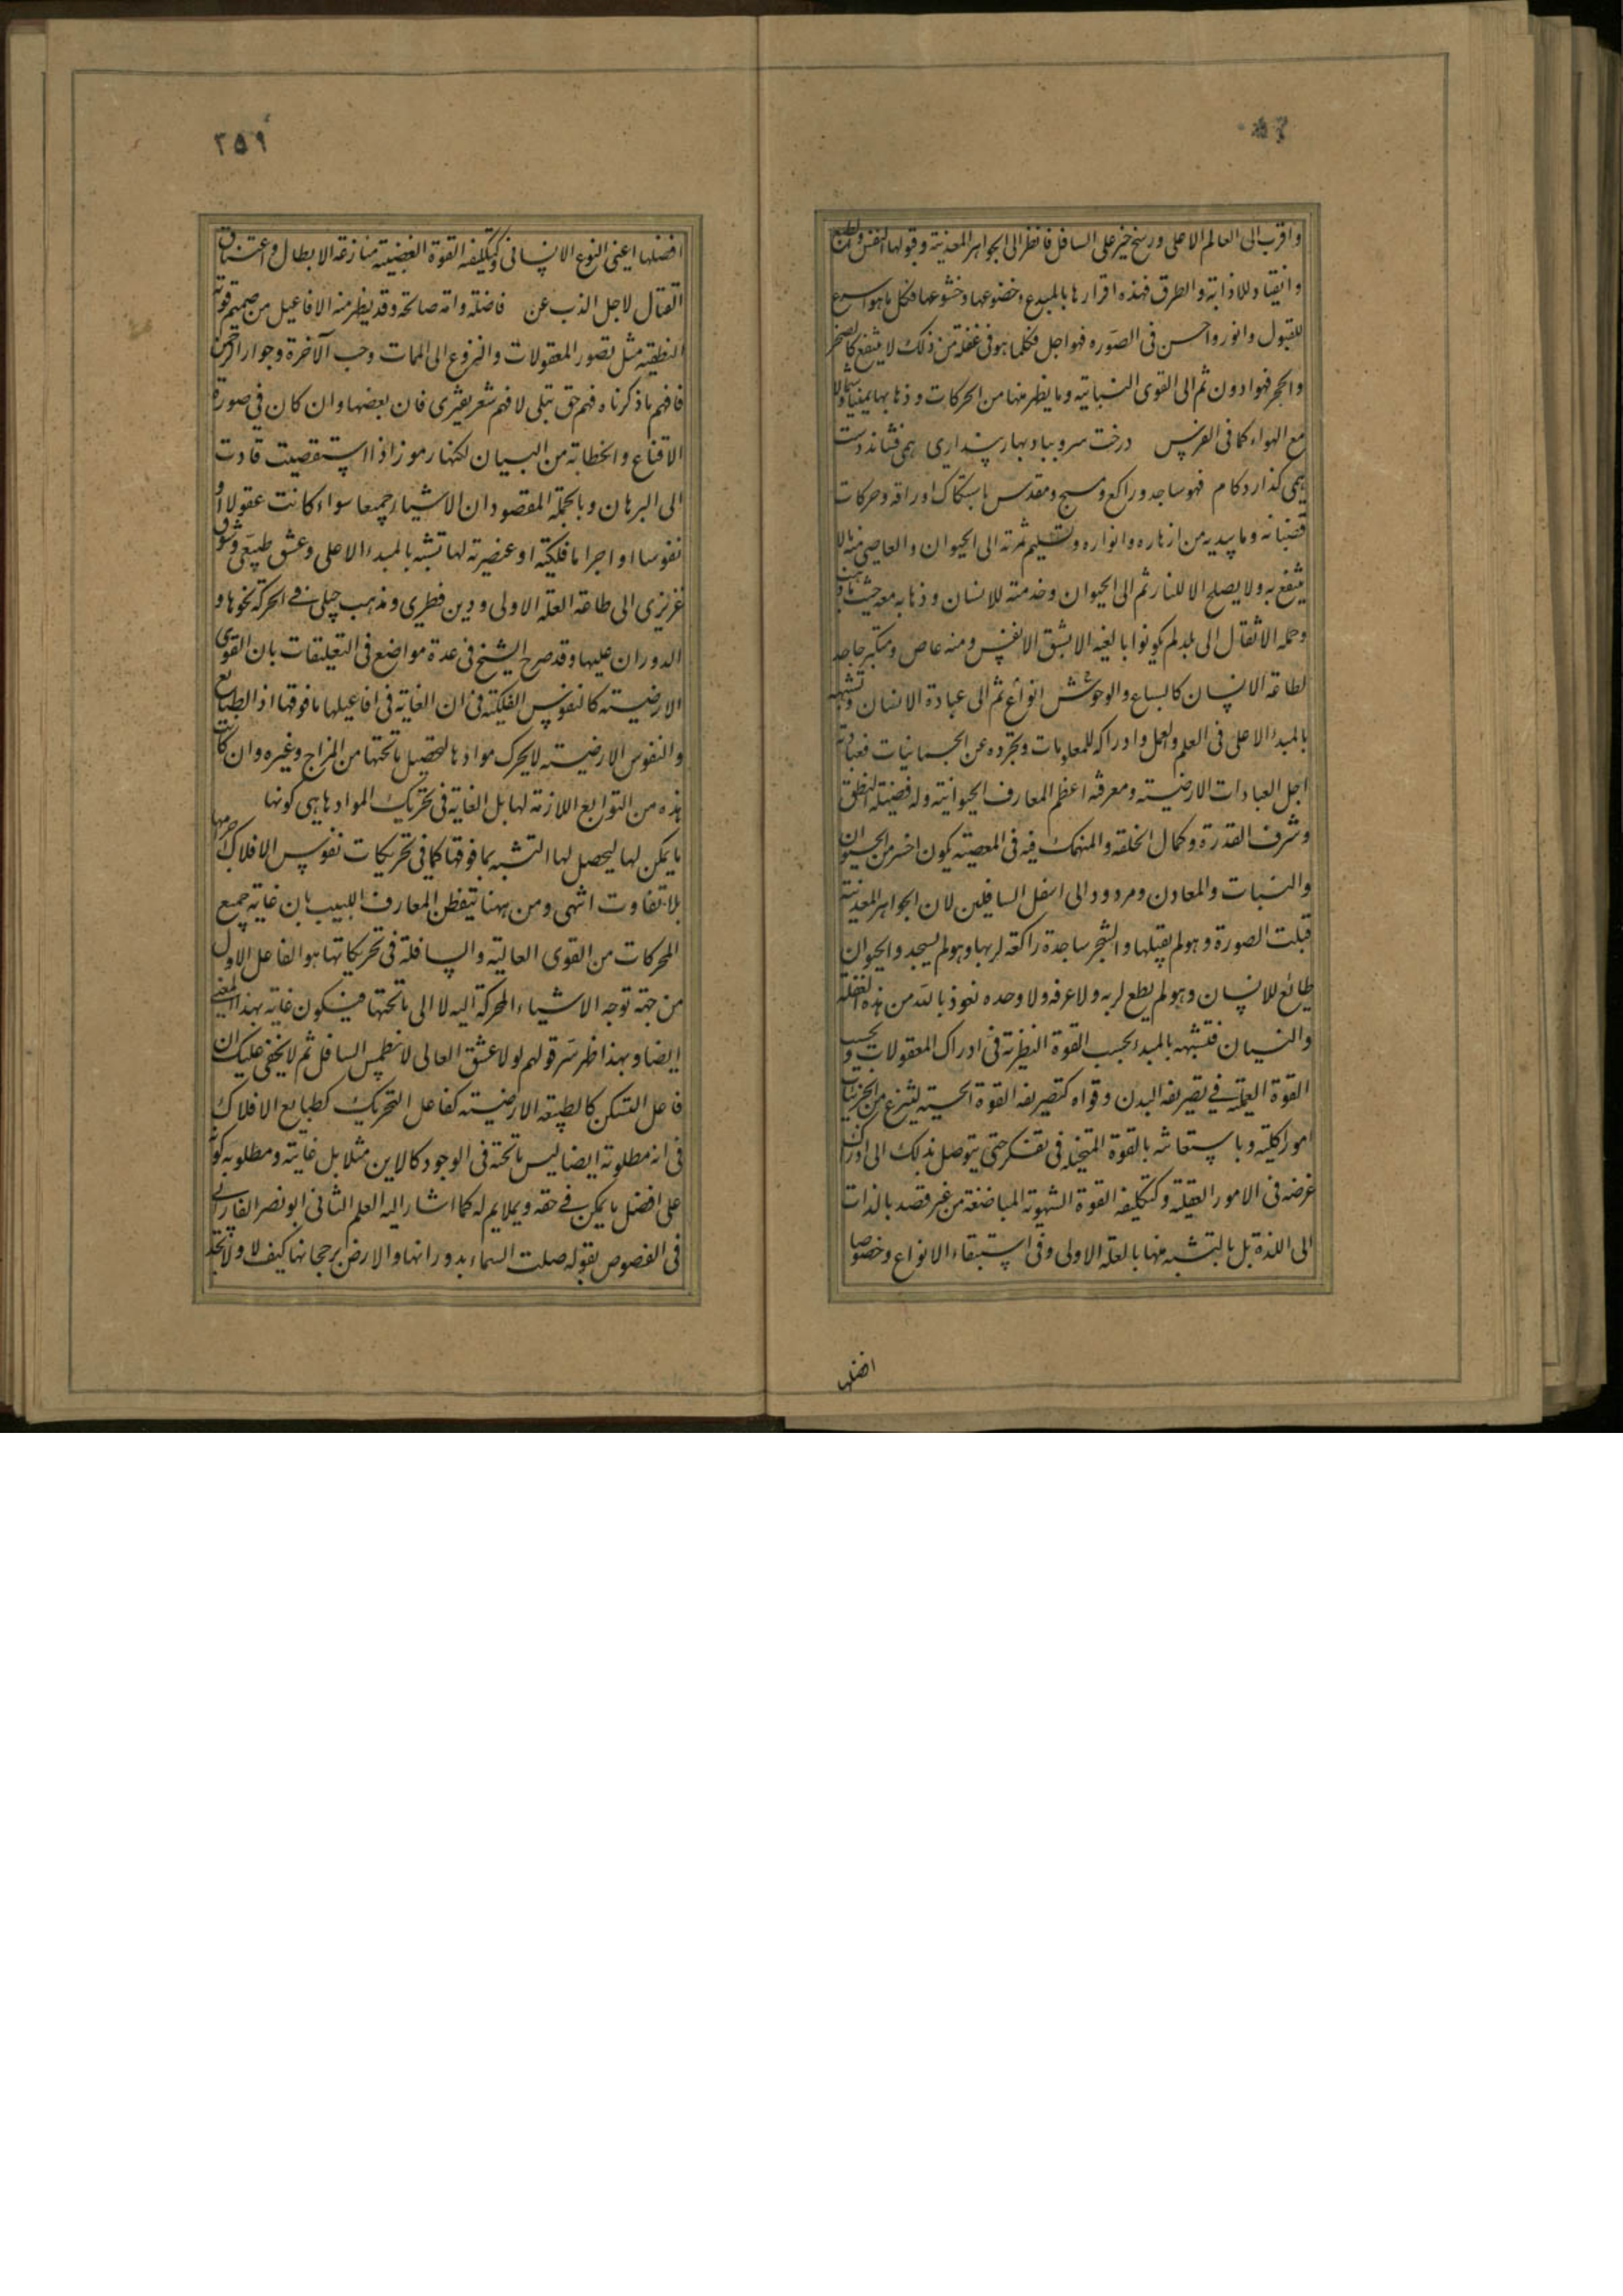 واقرب الى العالم الاعلى ورسخ خير على السافل فانظر الى الجواهر المعدنية وقبولها النفش والطبع
وانقياد للاذابة والطرق فهذه اقرارها بالمبدع وخضوعها وخشوعها فكل ما هو اسرع
للقبول وانور واحسن فى الصوره فهو اجل فكلما هو فى غفلة من ذلك لا ينتفع كالصخر
والحجر فهو ادون ثم الى القوى النباتية وما يظهر منها من الحركات وذهابها يمينا وشمالا
مع الهواء كما فى الفرس درخت سرو بباد بهار پندارى همى فشاند دست
همى گذارد گام فهو ساجد وراكع ومسبح ومقدس باستكاك اوراقه وحركات
قضبانه وما يبديه من ازهاره وانواره وتسليم ثمرته الى الحيوان والعاصى منه ما لا
ينتفع به ولا يصلح الا للنار ثم الى الحيوان وخدمته للانسان وذهابه معه حيث ذهب
وحمله الاثقال الى بلد لم يكونوا بالغيه الا بشق الانفس ومنه عاص ومتكبر جاحد
لطاعة الانسان كالسباع والوحوش انواع ثم الى عبادة الانسان وتشبهه
بالمبدء الاعلى فى العلم والعمل وادراكه للمعلومات وتجرده عن الجسمانيات فعبادته
اجل العبادات الارضيته ومعرفته اعظم المعارف الحيوانيته وله فضيلة النطق
وشرف القدرة وكمال الخلقه والمنهمك فيه فى المعصيته يكون اخس من الحيوان
والنبات والمعادن ومردود الى اسفل السافلين لان الجواهر المعدنية
قبلت الصورة وهو لم يقبلها والشجر ساجدة راكعة لربها وهو لم يسجد والحيوان
طائع للانسان وهو لم يطع لربه ولا عرفه ولا وحده نعوذ بالله من هذه الغفلة
والنسيان فتشبهه بالمبدء بحسب القوة النظرية فى ادراك المعقولات وبحسب
القوة العملية فى تصريفه البدن وقواه كتصريفه القوة الحسيته لينتزع من الجزئيات
امورا كلية وباستعانته بالقوة المتخيلة فى تفكر حتى يتوصل بذلك الى ادراك
غرضه فى الامور العقلية وكتكليفه القوة الشهوته المباضعة من غير قصد بالذات
الى اللذة بل بالتشبه منها بالعلة الاولى وفى استبقاء الانواع وخصوصا
افضلها
٢٥٩
افضلها اعنى النوع الانسانى وكتكليفه القوة الغضبيته منازعة الابطال واعتناق
القتال لاجل الذب عن فاضلة وامة صالحة وقد يظهر منه الافاعيل من صميم قوته
النطقيه مثل تصور المعقولات والنزوع الى الممات وحب الآخرة وجوار الرحمن
فافهم ما ذكرناه فهم حق تبلى لا فهم شعر يفترى فان بعضها وان كان فى صورة
الاقناع والخطابة من البيان لكنها رموز اذا استقصيت قادت
الى البرهان وبالجملة المقصود ان الاشياء جميعا سواء كانت عقولا او
نفوسا او اجراما فلكية او عنصرية لها تشبه بالمبدء الاعلى وعشق طبيعى وشوق
غريزى الى طاعة العلة الاولى ودين فطرى ومذهب جبلى فى الحركة نحوها و
الدوران عليها وقد صرح الشيخ فى عدة مواضع فى التعليقات بان القوى
الارضيته كالنفوس الفلكية فى ان الغاية فى افاعيلها ما فوقها اذ الطبايع
والنفوس الارضيته لا يحرك موادها لتحصيل ما تحتها من المزاج وغيره وان كانت
هذه من التوابع اللازمة لها بل الغاية فى تحريك الموادها هى كونها
ما يمكن لها ليحصل لها التشبه بما فوقها كما فى تحريكات نفوس الافلاك اجرامها
بلا تفاوت انتهى ومن ههنا يتفطن المعارف اللبيب بان غاية جميع
المحركات من القوى العالية والسافلة فى تحريكاتها هو الفاعل الاول
من جهة توجه الاشياء المحركة اليه لا الى ما تحتها فيكون غاية بهذا المعنى
ايضا وبهذا ظهر سر قولهم لولا عشق العالى لانطمس السافل ثم لا يخفى عليك ان
فاعل التسكن كالطبيعة الارضيته كفاعل التحريك كطبايع الافلاك
فى انه مطلوبه ايضا ليس ما تحته فى الوجود كالاين مثلا بل غايته ومطلوبه كونه
على افضل ما يمكن فى حقه ويملايم له كما اشار اليه العلم الثانى ابو نصر الفارابى
فى الفصوص بقوله صلت السماء بدورانها والارض برجحانها كيف لا ولا تجد